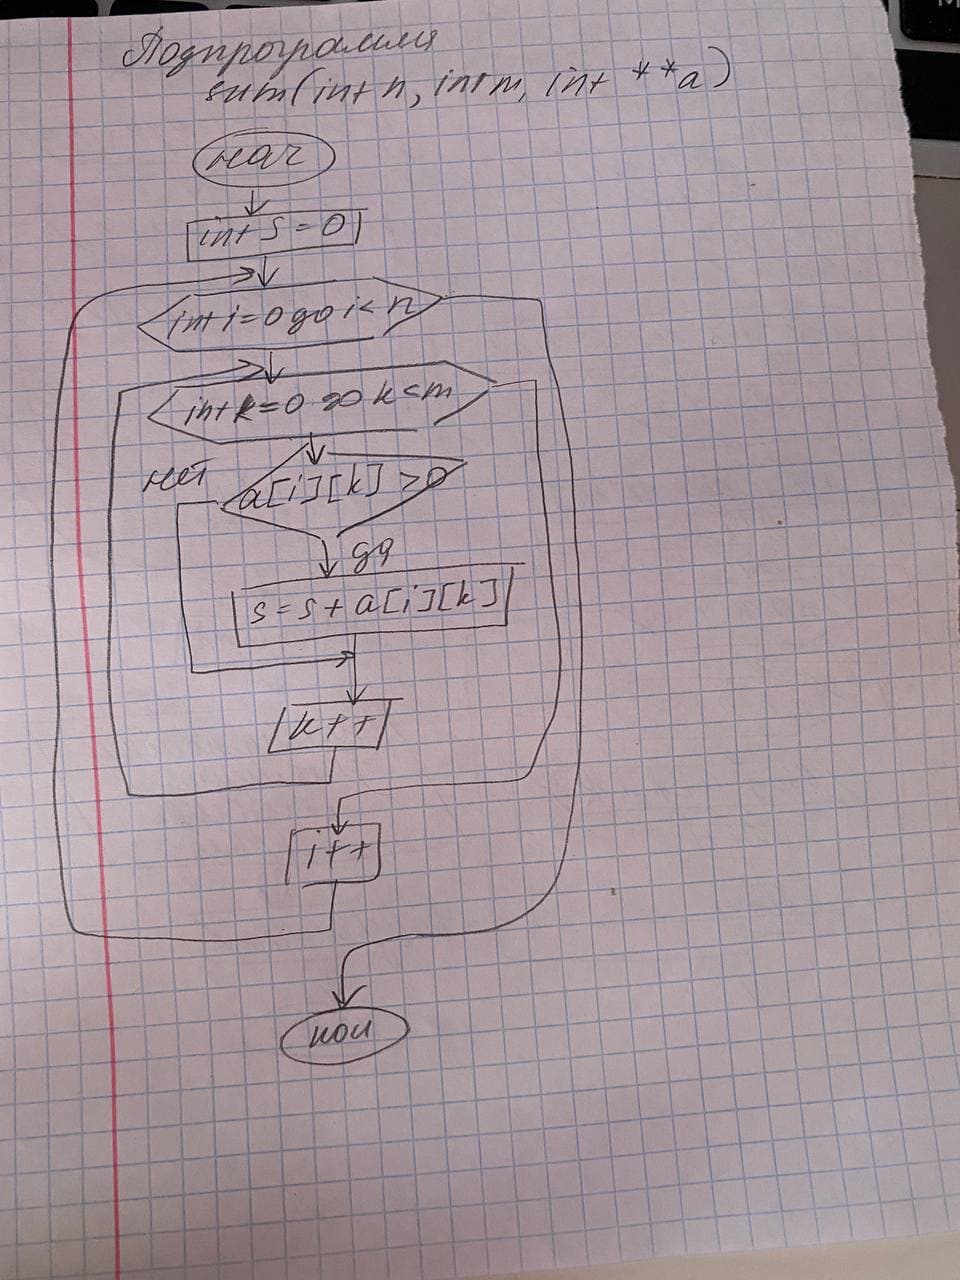 Подпрограмма
sum(int n, int m, int **a)
нач
int s = 0
int i=0 до i<n
int k=0 до k<m
нет
a[i][k] >0
да
s = s + a[i][k]
k++
i++
кон